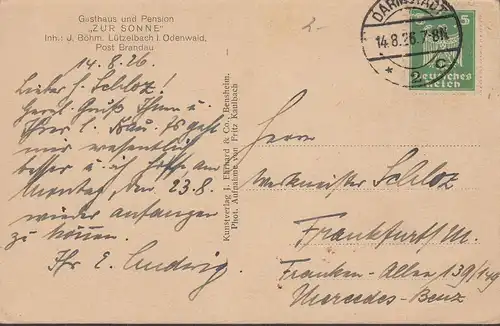 Gasthaus und Pension
„ZUR SONNE"
Inh.: J. Böhm, Lützelbach i. Odenwald,
Post Brandau
14.8.26.
Lieber H. Schloz!
Herzl. Gruß Ihnen u
Ihrer l. Frau. Es geht
mir wesentlich
besser u. ich hoffe, am
Montag, den 23.8.
wieder anfangen
zu können.
Ihr E. Ludwig.
Kunstverlag J. Ehrhard & Co., Bensheim.
Phot. Aufnahme von Fritz Kaulbach
2-
DARMSTADT
14.8.26.7-8N
* 2 c
5
5
Deutsches
Reich
Herrn
Werkmeister Schloz
Frankfurt M.
Franken-Allee 139/149
Mercedes-Benz